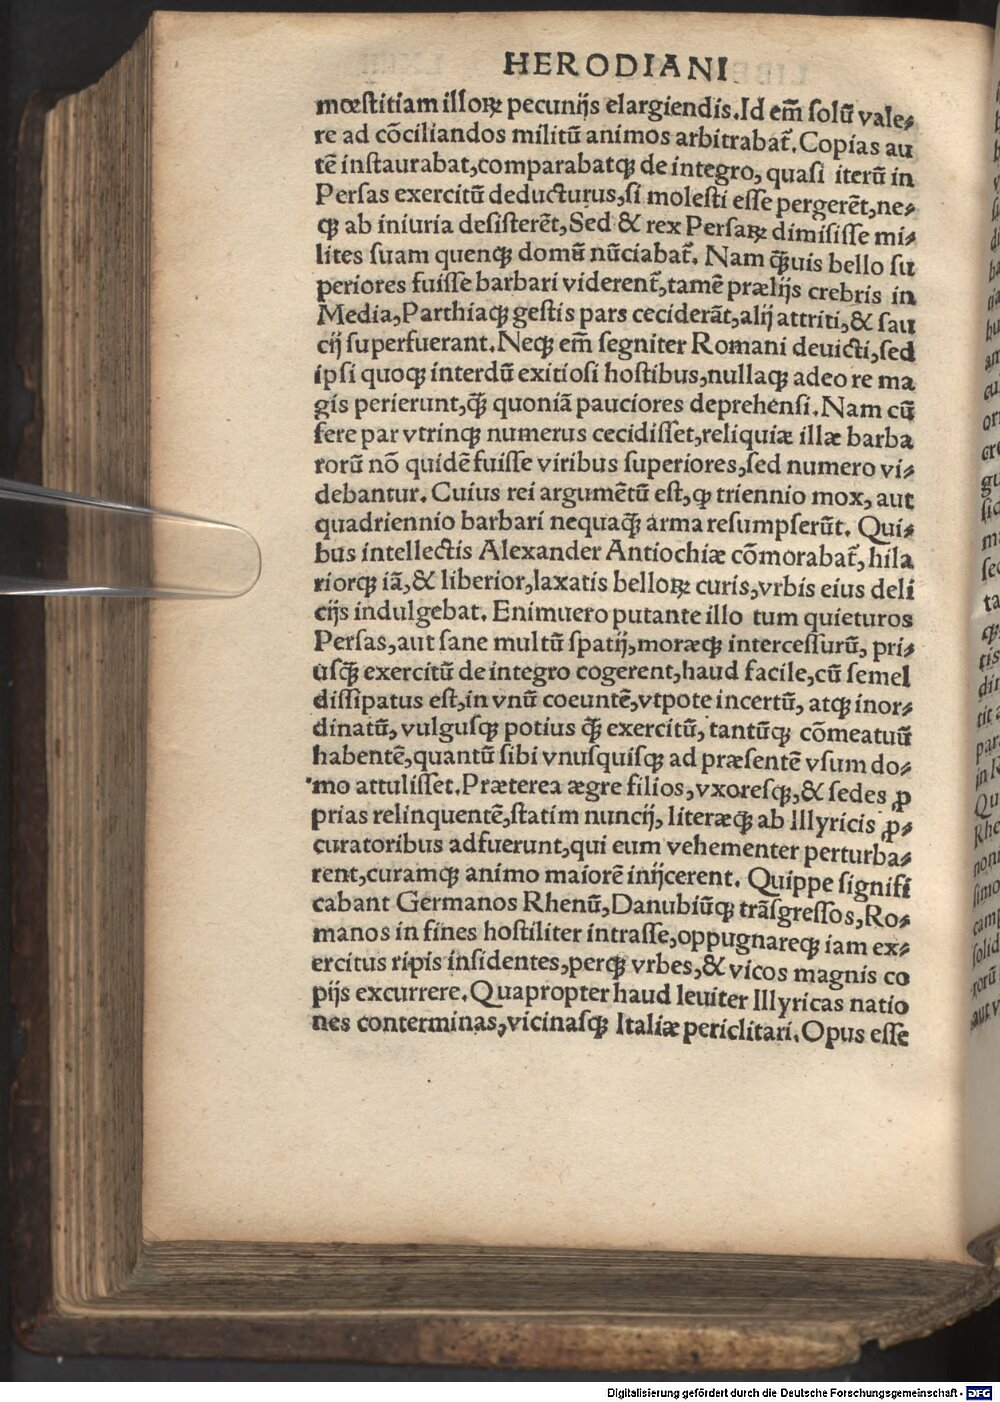 HERODIANI
mœſtitiam illoꝝ pecunijs elargiendis. Id em̃ ſolũ vale⸗
re ad cõciliandos militũ animos arbitrabat᷑. Copias au
tẽ inſtaurabat, comparabatqꝫ de integro, quaſi iterũ in
Perſas exercitũ deducturus, ſi moleſti eſſe pergerẽt, ne⸗
qꝫ ab iniuria deſiſterẽt, Sed & rex Perſaꝝ dimiſiſſe mi⸗
lites ſuam quenqꝫ domũ nũciabat᷑. Nam qꝫ̃uis bello ſu
periores fuiſſe barbari viderent᷑, tamẽ prælijs crebris in
Media, Parthiaqꝫ geſtis pars ceciderãt, alij attriti, & ſau
cij ſuperfuerant. Neqꝫ em̃ ſegniter Romani deuicti, ſed
ipſi quoqꝫ interdũ exitioſi hoſtibus, nullaqꝫ adeo re ma
gis perierunt, qꝫ̃ quoniã pauciores deprehenſi. Nam cũ
fere par vtrinqꝫ numerus cecidiſſet, reliquiæ illæ barba
rorũ nõ quidẽ fuiſſe viribus ſuperiores, ſed numero vi⸗
debantur. Cuius rei argumẽtũ eſt, ꝙ triennio mox, aut
quadriennio barbari nequaqꝫ̃ arma reſumpſerũt. Qui⸗
bus intellectis Alexander Antiochiæ cõmorabat᷑, hila
riorqꝫ iã, & liberior, laxatis belloꝝ curis, vrbis eius deli
cijs indulgebat. Enimuero putante illo tum quieturos
Perſas, aut ſane multũ ſpatij, moræqꝫ interceſſurũ, pri⸗
uſqꝫ̃ exercitũ de integro cogerent, haud facile, cũ ſemel
diſſipatus eſt, in vnũ coeuntẽ, vtpote incertũ, atqꝫ inor⸗
dinatũ, vulguſqꝫ potius qꝫ̃ exercitũ, tantũqꝫ cõmeatuũ
habentẽ, quantũ ſibi vnuſquiſqꝫ ad præſentẽ vſum do⸗
mo attuliſſet. Præterea ægre filios, vxoreſqꝫ, & ſedes ꝓ
prias relinquentẽ, ſtatim nuncij, literæqꝫ ab Illyricis ꝓ⸗
curatoribus adfuerunt, qui eum vehementer perturba⸗
rent, curamqꝫ animo maiorẽ inijcerent. Quippe ſignifi
cabant Germanos Rhenũ, Danubiũqꝫ trãſgreſſos, Ro⸗
manos in fines hoſtiliter intraſſe, oppugnareqꝫ iam ex⸗
ercitus ripis inſidentes, perqꝫ vrbes, & vicos magnis co
pijs excurrere. Quapropter haud leuiter Illyricas natio
nes conterminas, vicinaſqꝫ Italiæ periclitari. Opus eſſe
Digitalisierung gefördert durch die Deutsche Forschungsgemeinschaft - DFG